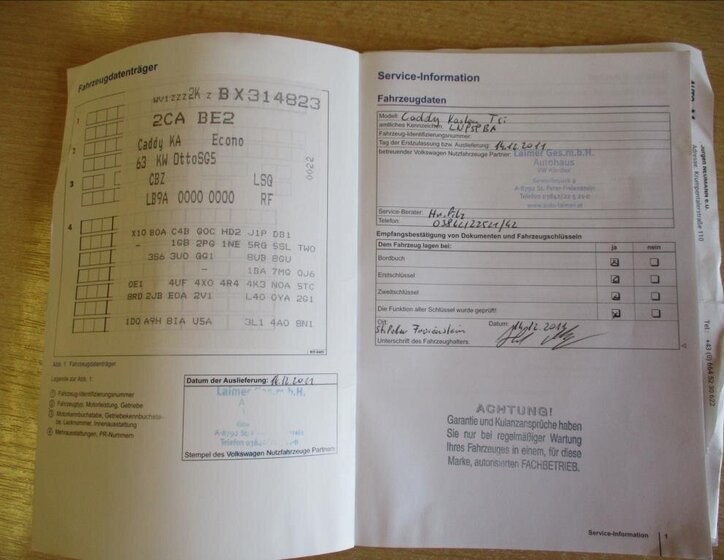 Fahrzeugdatenträger
WV1ZZZ2K Z BX314823
2CA BE2
Caddy KA Econo
63 KW OttoSG5
CBZ LSQ
LB9A 0000 0000 RF
0022
X10 B0A C4B Q0C HD2 J1P DB1
- 1GB 2PG 1NE 5RQ 5SL TWO
3S6 3U0 QQ1 8UB 8GU
- - - - 1BA 7MG 0J6
0E1 4UF 4X0 4R4 4K3 N0A 5TC
8RD 2JB E0A 2V1 L40 0YA 2G1
1D0 A9H 8IA U5A 3L1 4A0 8N1
Abb. 1 Fahrzeugdatenträger
Legende zur Abb. 1:
① Fahrzeug-Identifizierungsnummer
② Fahrzeugtyp, Motorleistung, Getriebe
③ Motorkennbuchstabe, Getriebekennbuchstabe, Lacknummer, Innenausstattung
④ Mehrausstattungen, PR-Nummern
Datum der Auslieferung: 14.12.2011
Laimer Ges.m.b.H.
A-8792 St.
Telefon
Stempel des Volkswagen Nutzfahrzeuge Partners
Service-Information
Fahrzeugdaten
Modell: Caddy Kasten Tsi
amtliches Kennzeichen: LNPSPBA
Fahrzeug-Identifizierungsnummer:
Tag der Erstzulassung bzw. Auslieferung: 14.12.2011
betreuender Volkswagen Nutzfahrzeuge Partner:
Laimer Ges.m.b.H.
Autohaus
VW Händler
Gewerbepark
A-8792 St. Peter Freienstein
www.auto-laimer.at
Service-Berater: Hr. Pilz
Telefon: 03842/22521/42
Empfangsbestätigung von Dokumenten und Fahrzeugschlüsseln
Dem Fahrzeug lagen bei: ja nein
Bordbuch
Erstschlüssel
Zweitschlüssel
Die Funktion aller Schlüssel wurde geprüft!
Ort: St. Peter Freienstein Datum: 14.12.2011
Unterschrift des Fahrzeughalters:
ACHTUNG!
Garantie und Kulanzansprüche haben
Sie nur bei regelmäßiger Wartung
Ihres Fahrzeuges in einem, für diese
Marke, autorisierten FACHBETRIEB.
Service-Information 1
Jürgen NEUMANN e.U.
Adresse: Krumpentalerstraße 110
Tel.: +43 (0) 664 52 30 622